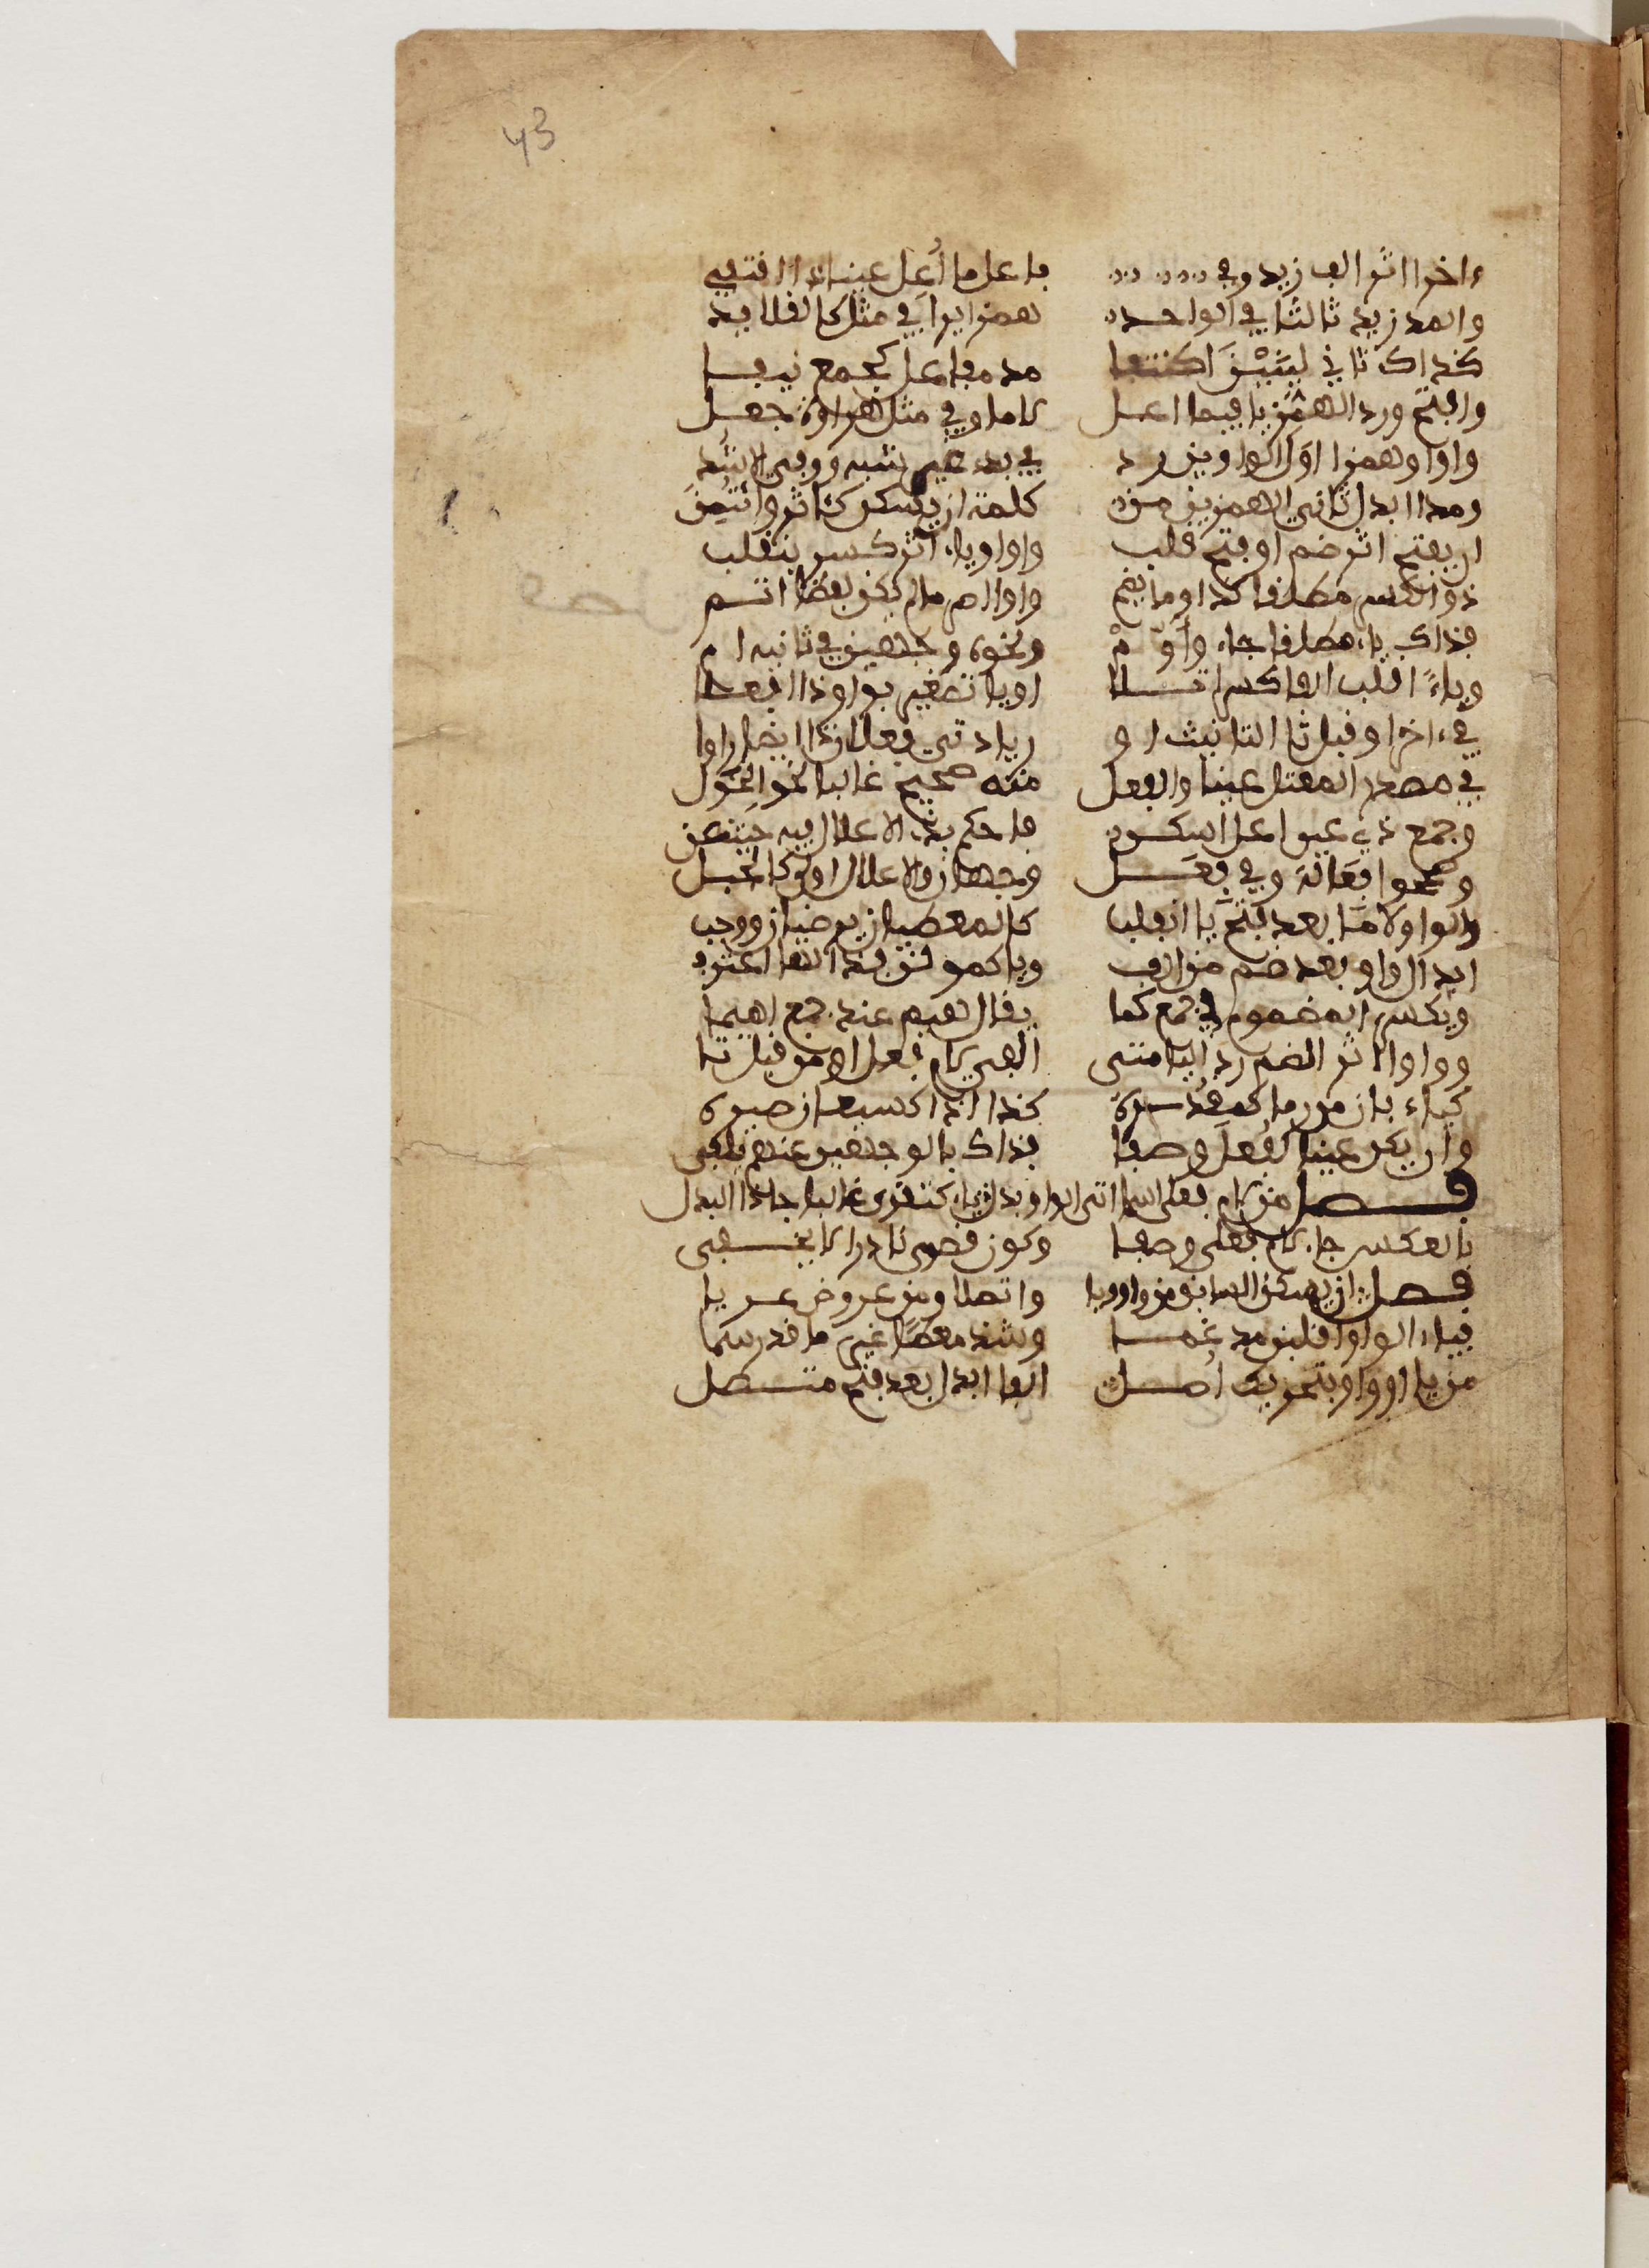 43
ءاخرا اثر الف زيد وفي فاعل ما أعل عينا ذا اقتفي
والمد زيد ثالثا في الواحد همزا يرا في مثل كالقلائد
كذاك ثاني لينين اكتنفا مد مفاعل كجمع نيفا
وافتح ورد الهمز يا فيما اعل لاما وفي مثل هراوة جعل
واوا وهمزا اول الواوين رد في بدء غير شبه ووفي الاشد
ومدا ابدل ثاني الهمزين من كلمة ان يسكن كئاثر وائتمن
ان يفتح اثر ضم او فتح قلب واوا وياء اثر كسر ينقلب
ذو الكسر مطلقا كذا وما يضم واوا اصر ما لم يكن لفظا اتم
فذاك ياء مطلقا جاء وأوم ونحوه وجهين في ثانيه ام
وياء اقلب الفا كسرا تلا او يا تصغير بواو ذا افعلا
في ءاخر او قبل تا التانيث او زيادتي فعلان ذا ايضا راوا
في مصدر المعتل عينا والفعل منه صحيح غالبا نحو الحول
وجمع ذي عين اعل او سكن فاحكم بذا الاعلال فيه حيث عن
وصححوا فعلة وفي فعل وجهان والاعلال اولى كالحيل
والواو لاما بعد فتح يا انقلب كالمعطيان يرضيان ووجب
ابدال واو بعد ضم من الف ويا كموقن بذا لها اعترف
ويكسر المضموم في جمع كما يقال هيم عند جمع اهيما
وواوا اثر الضم رد اليا متى الفي لام فعل او من قبل تا
كتاء بان من رما كمقدره كذا اذا كسبعان صيره
وان يكن عينا لفعلى وصفا فذاك بالوجهين عنهم يلفى
فصل من لام فعلى اسما اتى الواو بدل ياء كتقوى غالبا جا ذا البدل
بالعكس جاء لام فعلى وصفا وكون قصوى نادرا لا يخفى
فصل ان يسكن السابق من واو ويا واتصلا ومن عروض عريا
فياء الواو اقلبن مدغما وشذ معطا غير ما قد رسما
من يا او واو بتحريك اصل الفا ابدل بعد فتح متصل